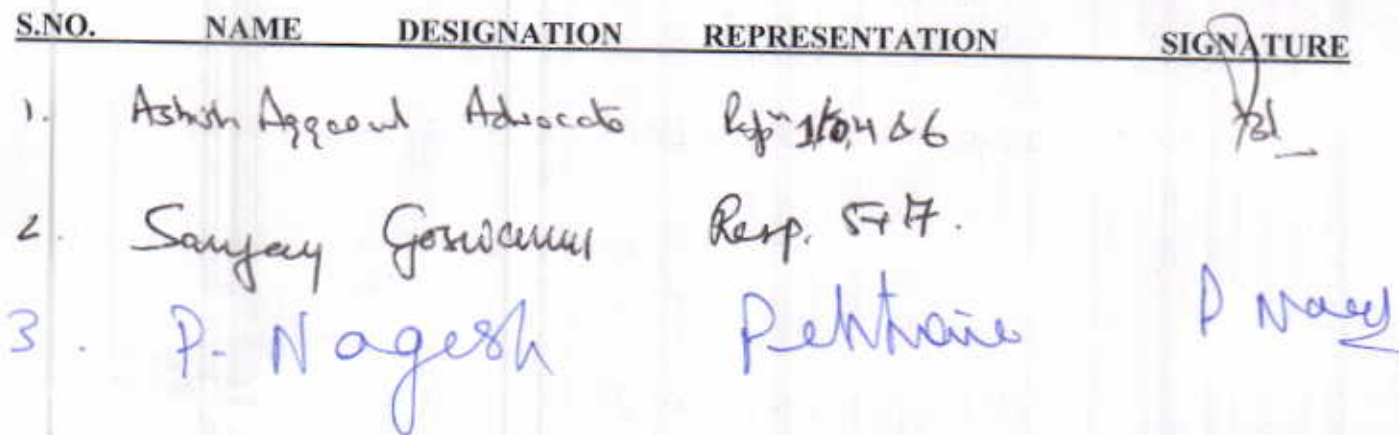 S.NO. NAME DESIGNATION REPRESENTATION SIGNATURE
1. Ashish Aggarwal Advocate 4 & 6
2. Sanjay Goswami Resp. 5 & 7.
3. P. Nagesh Petitioner P Nages